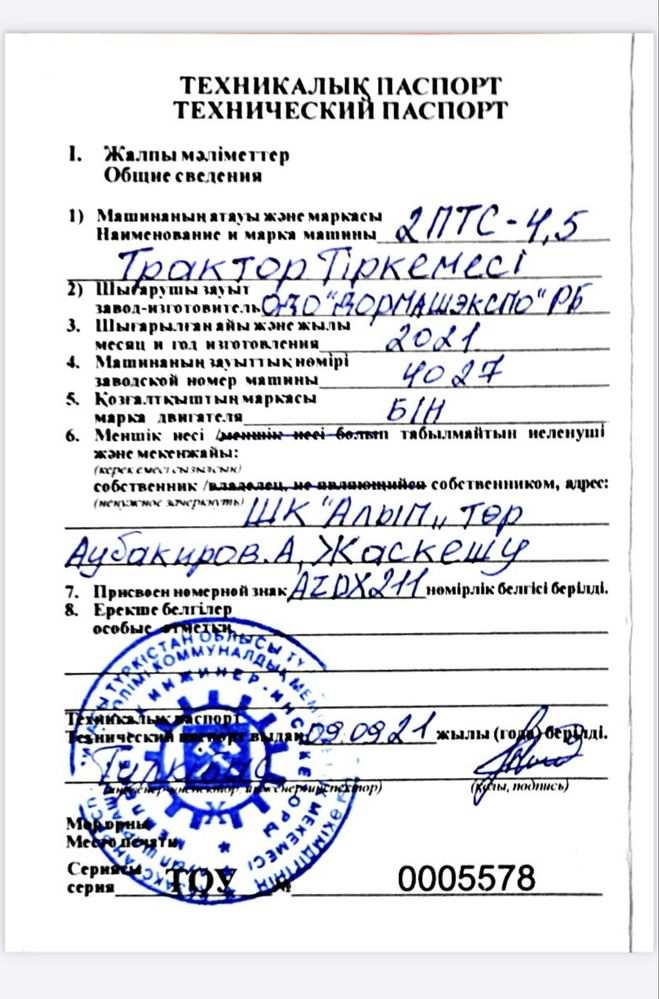 ТЕХНИКАЛЫҚ ПАСПОРТ
ТЕХНИЧЕСКИЙ ПАСПОРТ
I. Жалпы мәліметтер
Общие сведения
1) Машинаның атауы және маркасы
Наименование и марка машины 2ПТС-4,5
Трактор Тіркемесі
2) Шығарушы зауыт
завод-изготовитель ОЗО "ВОРМАШЭКСПО" РБ
3. Шығарылған айы және жылы
месяц и год изготовления 2021
4. Машинаның зауыттық нөмірі
заводской номер машины 4027
5. Қозғалтқыштың маркасы
марка двигателя Б/Н
6. Меншік несі /меншік несі болып табылмайтын иеленуші
және мекенжайы:
(керек емесі сызылсын)
собственник /владелец, не являющийся собственником, адрес:
(ненужное зачеркнуть) ШК "Алып" төр
Аубакиров.А, Жаскешу
7. Присвоен номерной знак AZDX211 нөмірлік белгісі берілді.
8. Ерекше белгілер
особые отметки
Техникалық паспорт
Технический паспорт выдан 09.09.21 жылы (года) берілді.
(инженер-инспектор, инженер-инспектор) (қолы, подпись)
Мөр орны
Место печати
Сериясы
серия ТОУ № 0005578